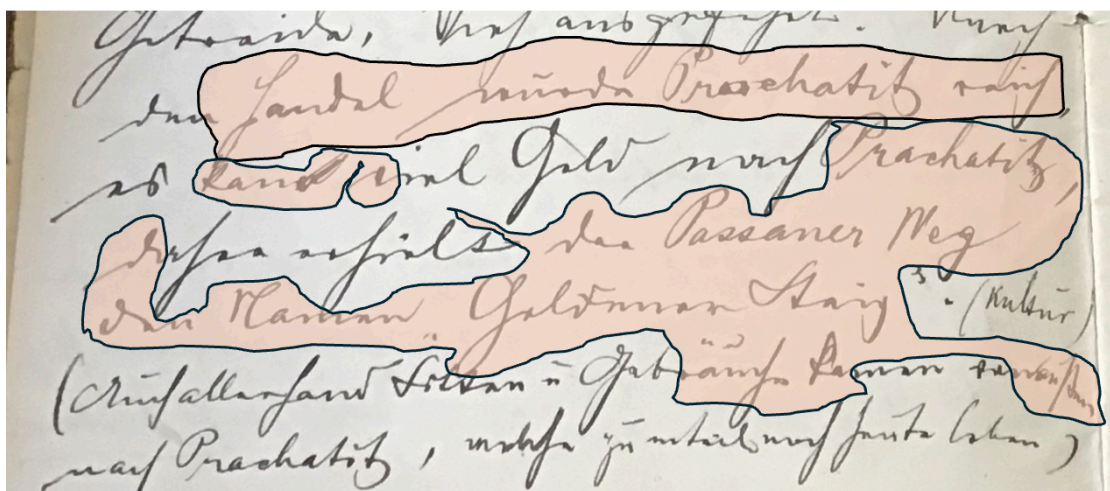 Getreide, Vieh ausgeführt. Durch
den Handel wurde Prachatitz reich,
es kam viel Geld nach Prachatitz,
daher erhielt der Passauer Weg
den Namen „Goldener Steig“. (Kultur)
(Auch allerhand Sitten u Gebräuche kamen von außen
nach Prachatitz, welche zum teil noch heute leben)